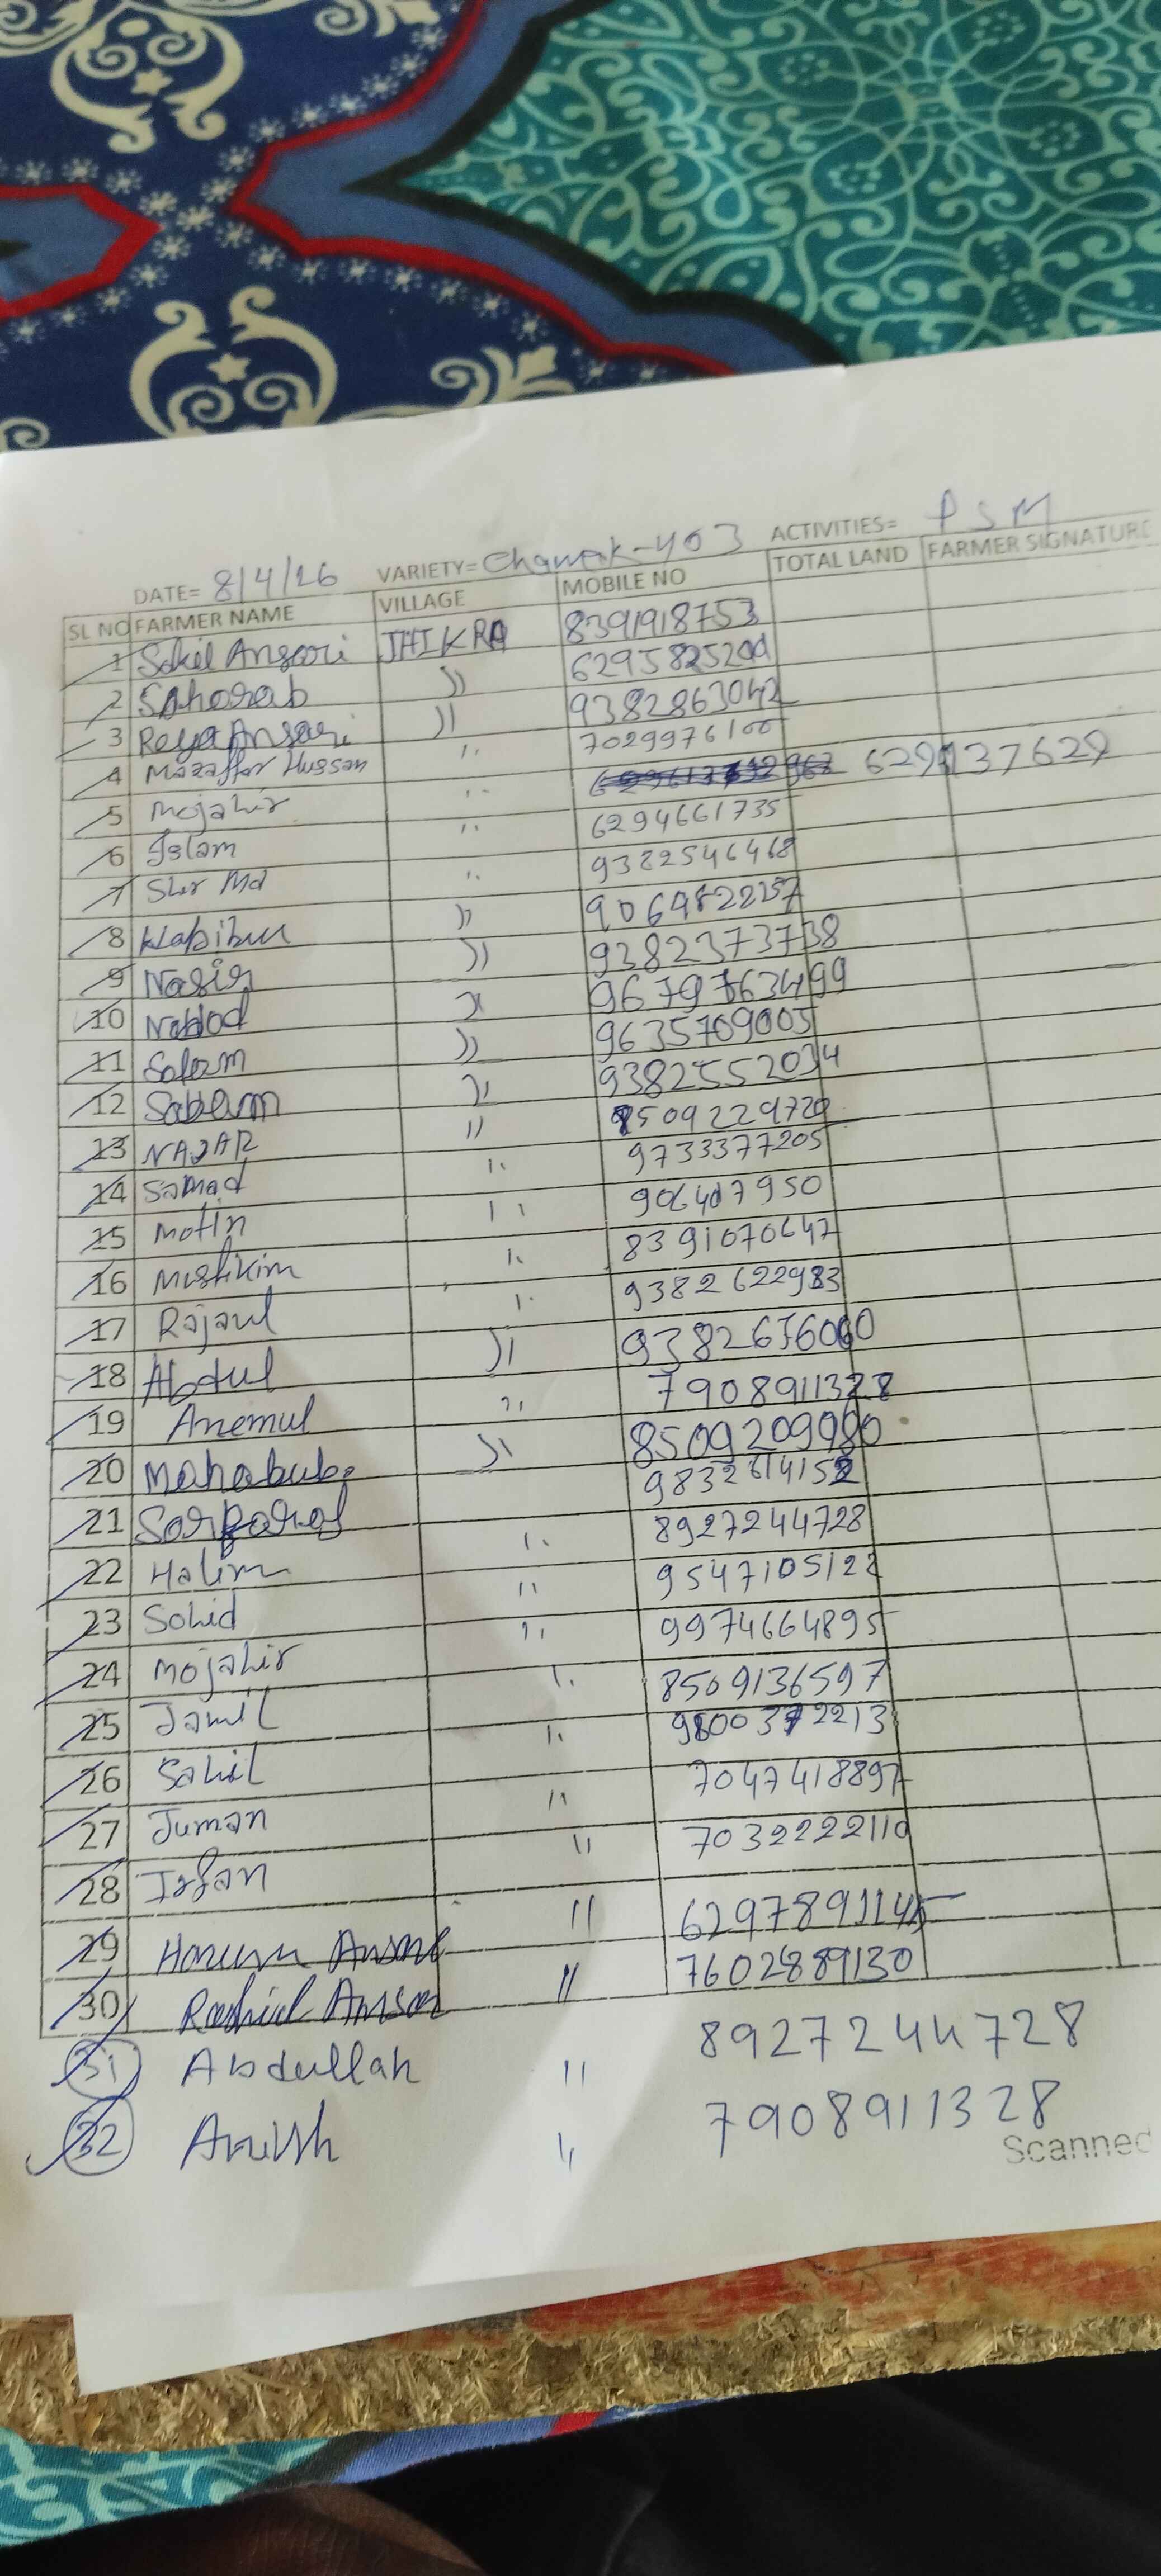 DATE= 8/4/26 VARIETY= Chamak-403 ACTIVITIES= PSM
SL NO FARMER NAME VILLAGE MOBILE NO TOTAL LAND FARMER SIGNATURE
1 Sakil Ansari JHIKRA 8391918753
2 Saharab " 6295825200
3 Reya Ansari " 9382863042
4 Mazaffar Hussan " 7029976100
5 Mojahir " 629137629
6 Islam " 6294661735
7 Sher Md " 9382546468
8 Habibur " 9064822157
9 Nasir " 9382373738
10 " 9679763499
11 Salam " 9635709005
12 " 9382552034
13 NAJAR " 8509229720
14 Samad " 9733377205
15 Motin " 906407950
16 Mustikim " 8391070647
17 Rajaul " 9382622983
18 Abdul " 9382676060
19 Anemul " 7908911328
20 Mahabub " 8509209980
21 9832614152
22 Halim " 8927244728
23 Sohid " 9547105122
24 Mojahir " 9974664895
25 Jamil " 8509136597
26 Sahil " 9800372213
27 Juman " 7047418897
28 Irfan " 7032222110
29 Harun Ansari " 6297891145
30 Rashid Ansar " 7602889130
31 Abdullah " 8927244728
32 Anish " 7908911328
Scanned